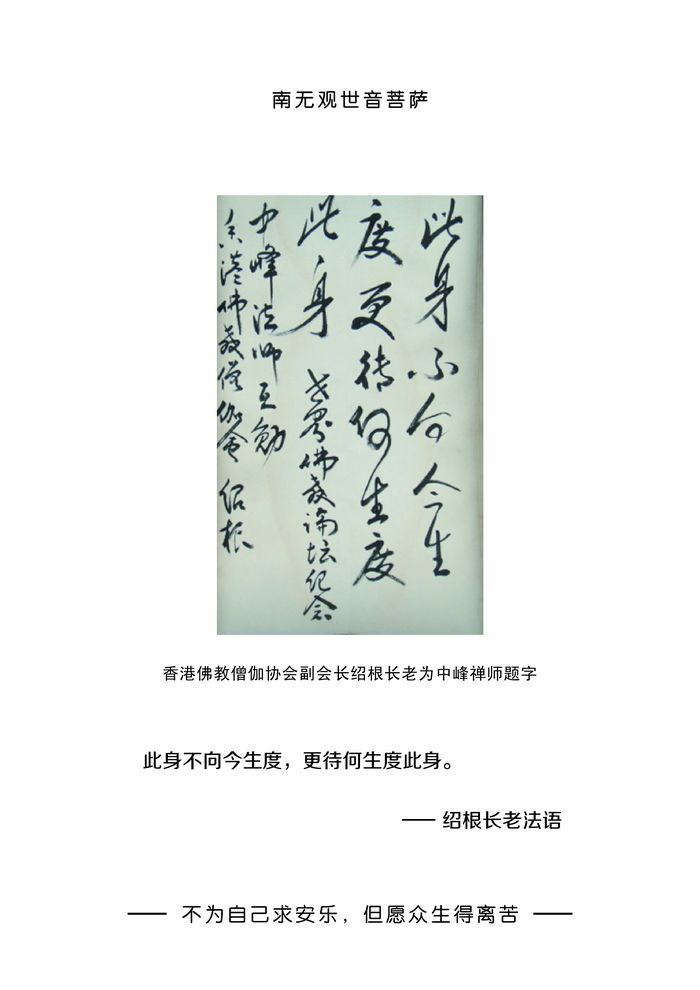 南无观世音菩萨
此身不向今生
度更待何生度
此身 世界佛教论坛纪念
中峰法师互勉
香港佛教僧伽会 绍根
香港佛教僧伽协会副会长绍根长老为中峰禅师题字
此身不向今生度，更待何生度此身。
—— 绍根长老法语
—— 不为自己求安乐，但愿众生得离苦 ——